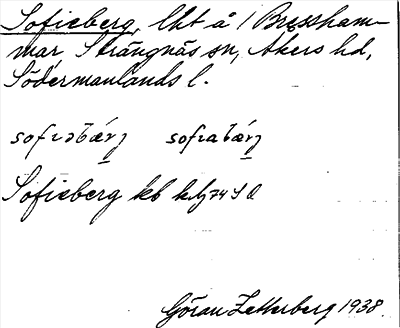 Sofieberg, lht å / Bressham-
mar, Strängnäs sn, Åkers hd,
Södermanlands l.
sofiəbærj sofiabærj
Sofieberg kb
Göran Zetterberg 1938.